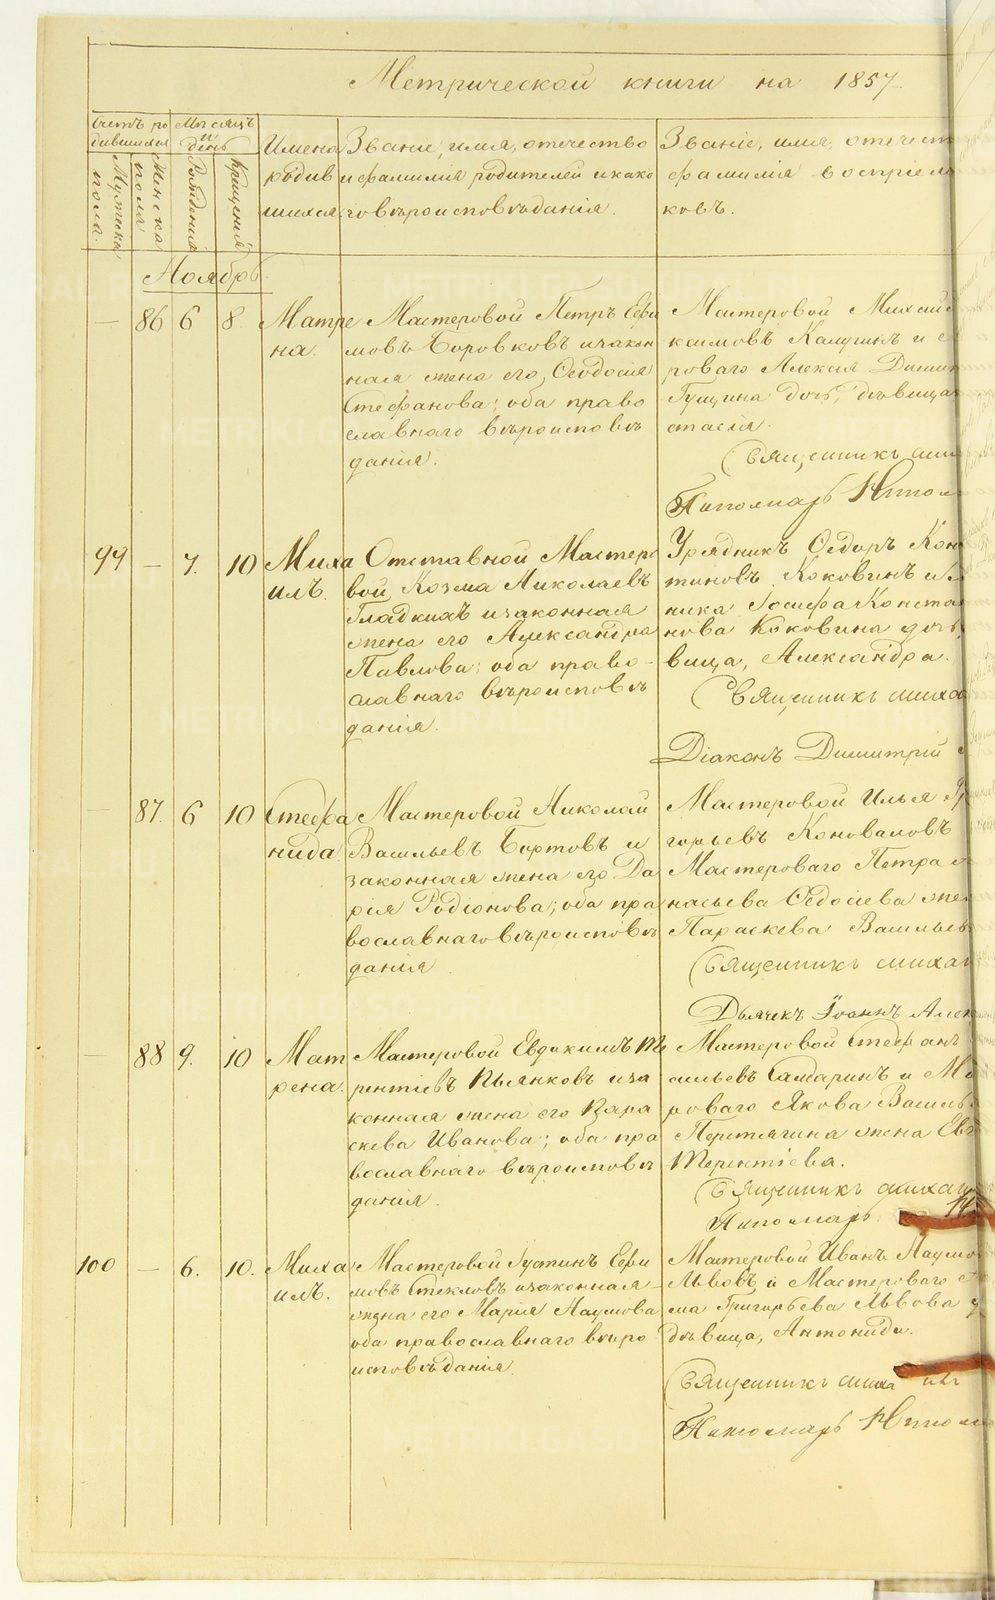 Метрической книги на 1857
Счетъ ро
дившихся
Мѣсяцъ
и
день
Мужеска
пола.
Женска
пола
Рожденія
Крещенія
Имена
родив
шихся.
Званіе, имя, отечество
и фамилія родителей и како
го вѣроисповѣданія.
Званіе, имя, отечест
фамилія воспріем
ковъ.
Ноябрь.
— 86 6 8.
Матре
на.
Мастеровой Петръ Ефи
мовъ Боровковъ и закон
ная жена его, Ѳеодосія
Стефанова; оба право
славнаго вѣроисповѣ
данія.
Мастеровой Михаил
симовъ Калугинъ и
роваго Алексія Дими
Гущина дочь, дѣвица
стасія.
Священникъ Миха
Пономарь Иппол
99 — 7. 10
Миха
илъ.
Отставной Мастеро
вой Козма Николаевъ
Гладкихъ и законная
жена его Александра
Павлова; оба право-
славнаго вѣроисповѣ
данія.
Урядникъ Ѳедоръ Кон
тиновъ Коковинъ и
ника Іосифа Конста
нова Коковина дочь,
вица, Александра.
Священникъ Миха
Діаконъ Димитрій
— 87. 6 10
Стефа
нида
Мастеровой Николай
Васильевъ Бортовъ и
законная жена его Да
рія Родіонова; оба пра
вославнаго вѣроисповѣ
данія
Мастеровой Илья Гр
горьевъ Коноваловъ
Мастероваго Петра
насьева Ѳедосіева же
Параскева Васильев
Священникъ Миха
Дьячекъ Іоаннъ Алек
88 9. 10
Мат
рена.
Мастеровой Евдокимъ Те
рентіевъ Пьянковъ и за
конная жена его Пара
скева Иванова; оба пра
вославнаго вѣроисповѣ
данія.
Мастеровой Стефанъ
сильевъ Самаринъ и Ма
роваго Якова Василь
Перетягина жена Ев
Терентіева.
Священникъ Миха
Пономарь
100 — 6. 10.
Миха
илъ.
Мастеровой Густинъ Ефи
мовъ Стекловъ и законная
жена его Марія Наумова
оба православнаго вѣро
исповѣданія
Мастеровой Иванъ Наумо
Львовъ и Мастероваго
ма Григорьева Львова
дѣвица, Антонида.
Священникъ Миха илъ
Пономарь Иппол
METRIKI.GASO-URAL.RU